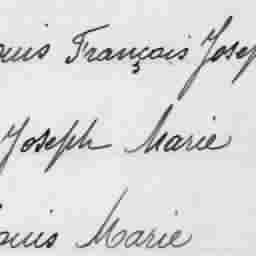 ouis François Josep
Joseph Marie
ouis Marie